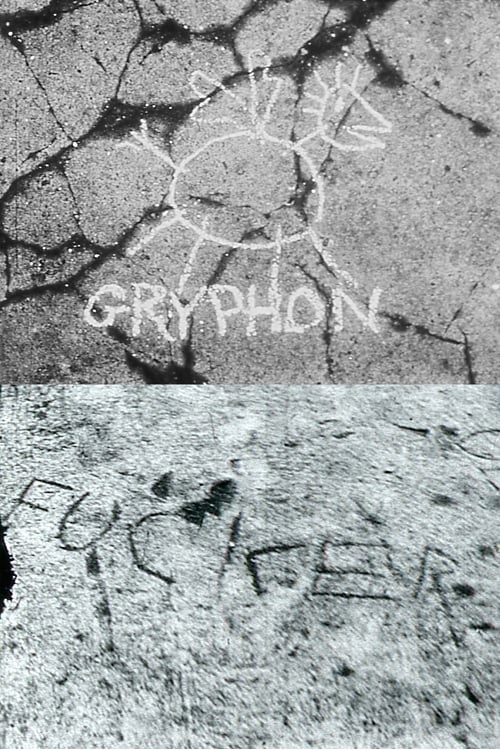 GRYPHON
FUCKER